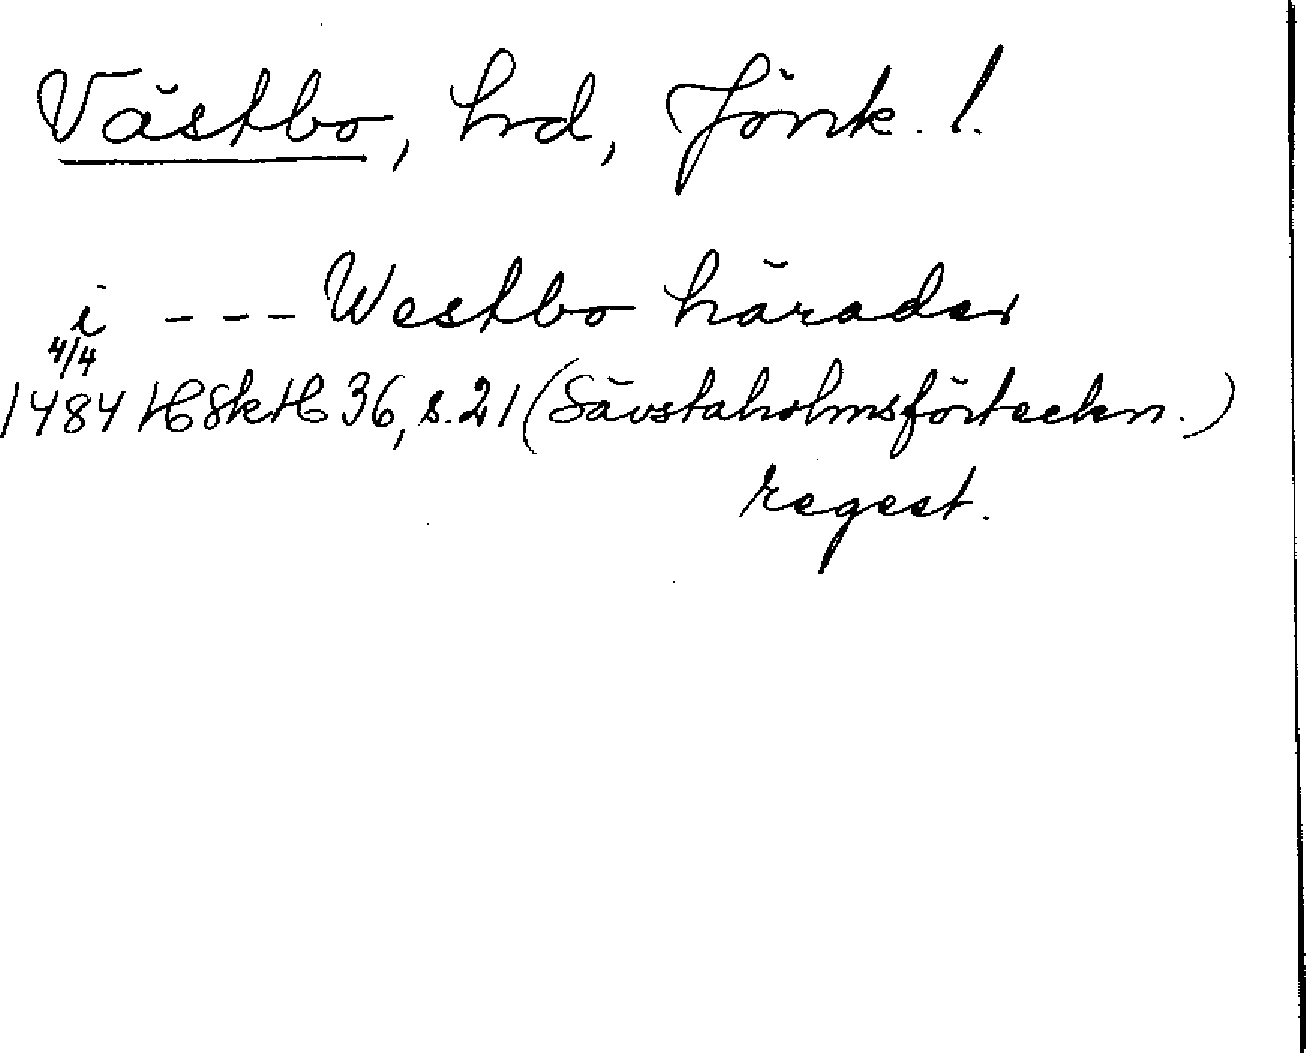 Västbo, hrd, Jönk. l.
i - - - Westbo härader
4/4
1484 HSkH 36, s. 21 (Sävstaholmsförteckn.)
regest.